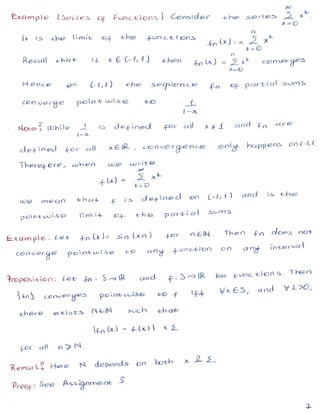 Example (Series of Functions) Consider the series ∞∑k=0 x^k.
It is the limit of the functions fn(x) := n∑k=0 x^k
Recall that if x ∈ (-1,1) then fn(x) = n∑k=0 x^k converges
Hence on (-1,1) the sequence fn of partial sums
converge pointwise to 1/(1-x)
Note: While 1/(1-x) is defined for all x ≠ 1 and fn are
defined for all x∈R, convergence only happens on (-1,1).
Therefore, when we write
f(x) = ∞∑k=0 x^k
we mean that f is defined on (-1,1) and is the
pointwise limit of the partial sums
Example: Let fn(x) = sin(xn) for n∈N. Then fn does not
converge pointwise to any function on any interval.
Proposition: Let fn: S→R and f: S→R be functions. Then
{fn} converges pointwise to f iff ∀x∈S, and ∀ε>0,
there exists N∈N such that
|fn(x) - f(x)| < ε
for all n ≥ N.
Remark: Here N depends on both x & ε.
Proof: See Assignment 5.
2